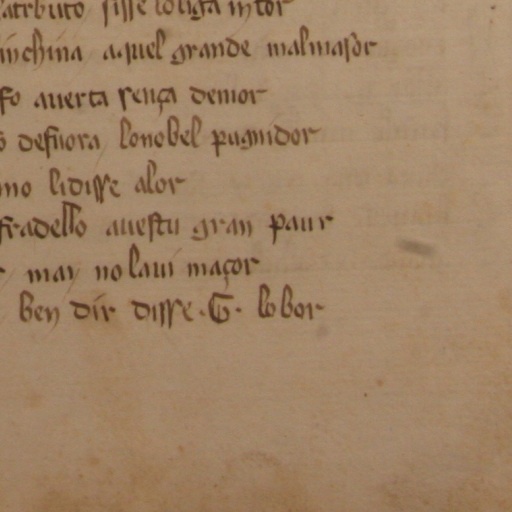 atrbuto sisse loliga intor
inchina aquel grande malmasor
fo auerta sença demor
defuora lonobel pugnidor
mo lidisse alor
fradello auestu gran paur
may nolaui maçor
ben dir disse .G. lobor